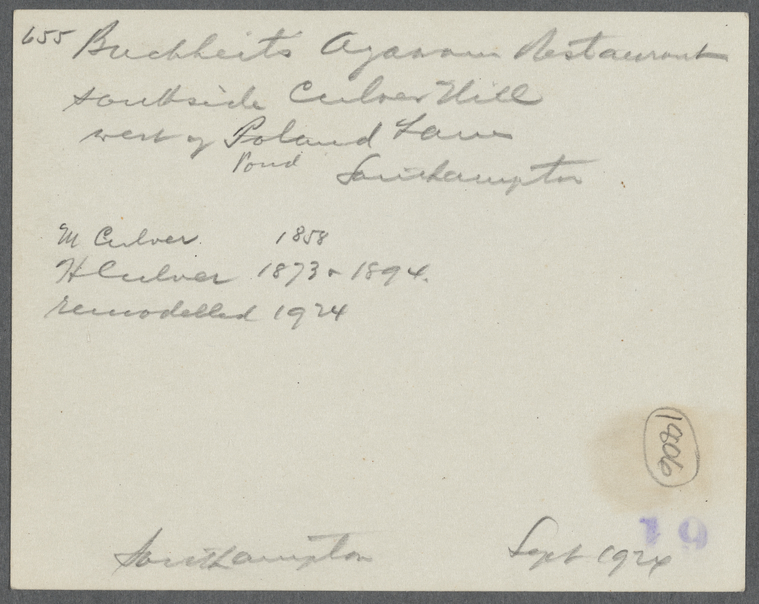 655 Buchheit's Agawam Restaurant
southside Culver Hill
west of Poland Lane
Pond Southampton
M Culver 1858
H Culver 1873 & 1894.
remodelled 1924
1806
19
Southampton Sept 1924